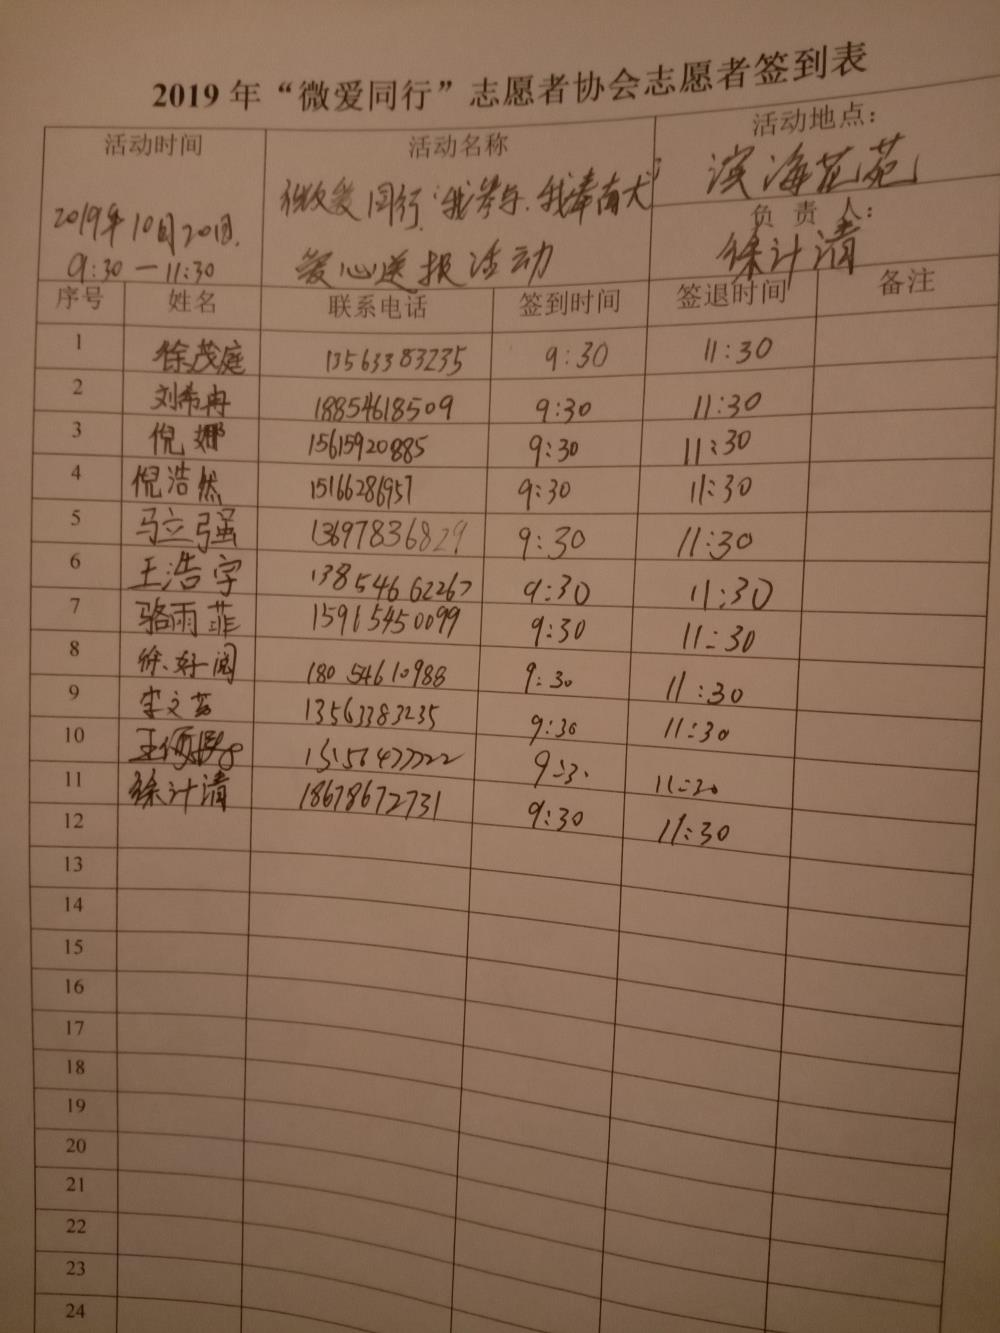 2019年“微爱同行”志愿者协会志愿者签到表
活动时间 活动名称 活动地点：
2019年10月20日. 微爱同行“我参与.我奉献” 滨海花苑
9:30—11:30 爱心送报活动 负责人： 徐计清
序号 姓名 联系电话 签到时间 签退时间 备注
1 徐茂庭 13563383235 9:30 11:30
2 刘希冉 18854618509 9:30 11:30
3 倪娜 15615920885 9:30 11:30
4 倪浩然 15166286957 9:30 11:30
5 马立强 13697836829 9:30 11:30
6 王浩宇 13854662267 9:30 11:30
7 骆雨菲 15915450099 9:30 11:30
8 徐好阅 18054610988 9:30 11:30
9 宋文芸 13563383235 9:30 11:30
10 9:3 11:30
11 徐计清 18678672731 9:30 11:30
12
13
14
15
16
17
18
19
20
21
22
23
24